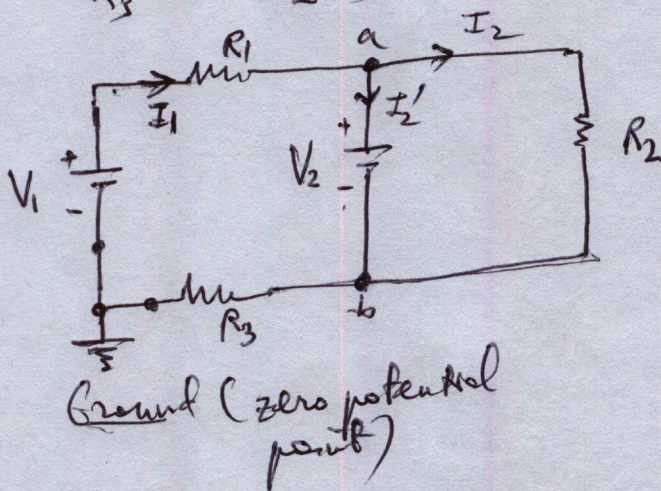 R3 2
R1 a I2
I1 I2'
+ +
V1 V2 R2
- -
R3 b
Ground (zero potential
point)